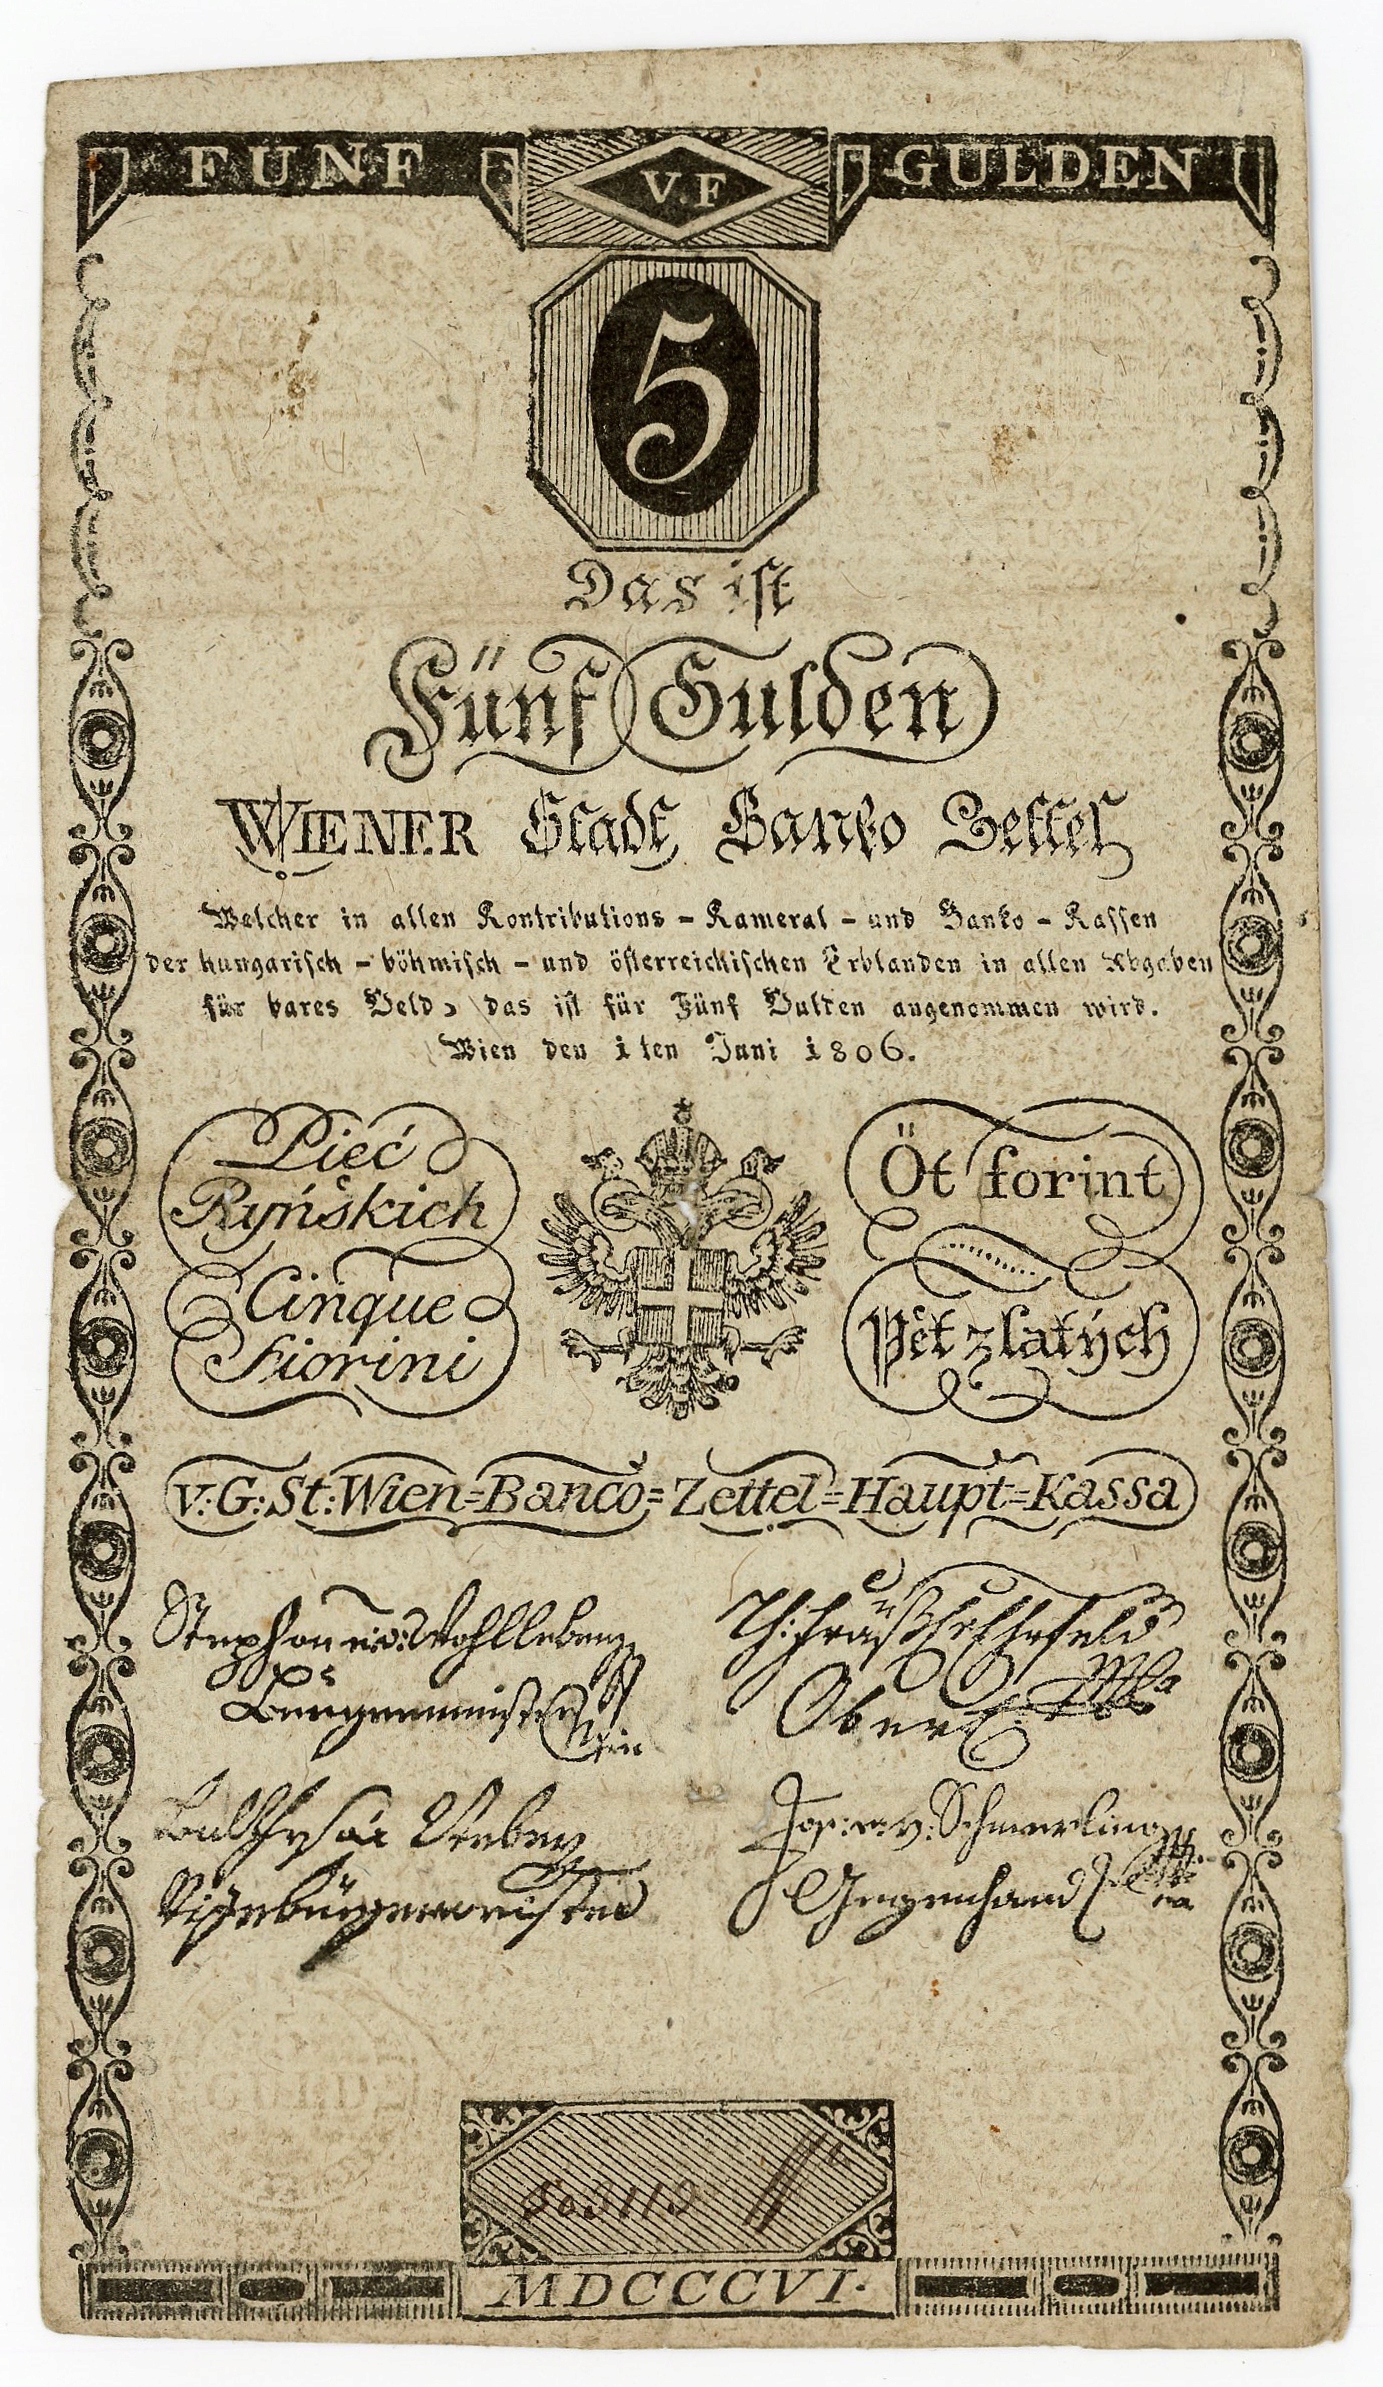 FÜNF V.F GULDEN
5
Das ist
Fünf Gulden
WIENER Stadt Banko Zettel
Welcher in allen Kontributions - Kameral - und Banko - Kassen
der hungarisch - böhmisch - und österreichischen Erblanden in allen Abgaben
für bares Geld, das ist für Fünf Gulden angenommen wird.
Wien den 1ten Juni 1806.
Pięć
Ryńskich
Cinque
Fiorini
Öt forint
Pět zlatých
V:G:St:Wien=Banco=Zettel=Haupt=Kassa
Stephan e.v. Wohlleben
Burgermeister
Ober
Jos: e: v: Schmerling
Gegenhand
Vizebürgermeister
MDCCCVI.